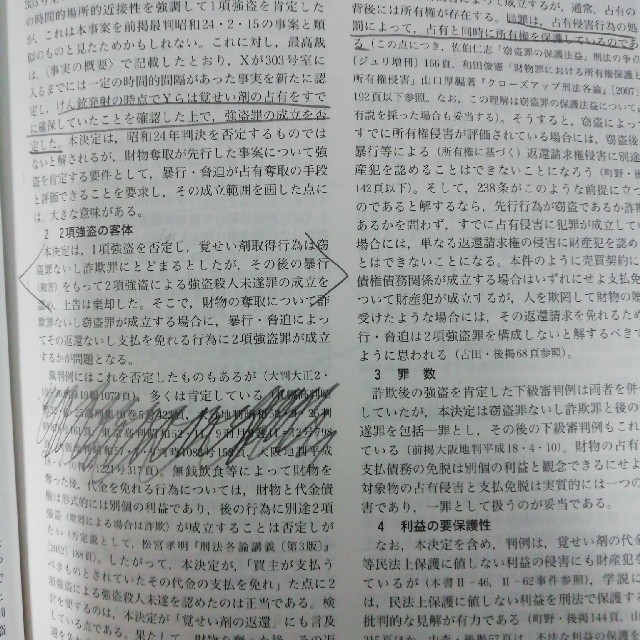 の時間的場所的近接性を強調して1項強盗を肯定した
が、これは本事案を前掲最判昭和24・2・15の事案と類
似のものと見たためかもしれない。これに対し、最高裁
は、〈事実の概要〉で記載したとおり、Xが303号室に
入るまでには一定の時間的間隔があった事実を新たに認
定し、けん銃発射の時点でYらは覚せい剤の占有をすで
に確保していたことを確認した上で、強盗罪の成立を否
定した。本決定は、昭和24年判決を否定するものでは
ないと解されるが、財物奪取が先行した事案について強
盗を肯定する要件として、暴行・脅迫が占有奪取の手段
と評価できることを要求し、その成立範囲を画した点に
は、大きな意味がある。
2 2項強盗の客体
本決定は、1項強盗を否定し、覚せい剤取得行為は窃
盗罪ないし詐欺罪にとどまるとしたが、その後の暴行
をもって2項強盗による強盗殺人未遂罪の成立を
認め、上告は棄却した。そこで、財物の奪取について詐
欺罪ないし窃盗罪が成立する場合に、暴行・脅迫によっ
てその返還ないし支払を免れる行為に2項強盗が成立す
るかが問題となる。
裁判例にはこれを否定したものもあるが(大判大正2・
多くは肯定している
無銭飲食等によって財物を
奪った後、代金を免れる行為については、財物と代金債
権は形式的には別個の利益であり、後の行為に別途2項
強盗(欺罔による場合は詐欺)が成立することは否定しが
たい(否定説として、松宮孝明『刑法各論講義〔第3版〕』
[2012]188頁)。したがって、本決定が、「買主が支払う
べきものとされていたその代金の支払を免れ」た点に2
項強盗による強盗殺人未遂を認めたのは正当である。検
討を要するのは、本決定が「覚せい剤の返還」にも言及
している点である。果たして、財物を奪った後、その返
背後には所有権が存在する。
罰によって、占有と同時に所有権を保護しているのであ
る(この点につき、佐伯仁志「窃盗罪の保護法益」刑法の争点
(ジュリ増刊)166頁、和田俊憲「財物罪における所有権保護
所有権侵害」山口厚編著『クローズアップ刑法各論』[2007]
192頁以下参照。なお、この理解は窃盗罪の保護法益について
有説を採った場合も妥当する)。そうすると、窃盗によっ
すでに所有権侵害が評価されている場合には、窃盗後
暴行等による(所有権に基づく)返還請求権侵害に別途
産犯を認めることはできないことになろう(町野・
142頁以下)。そして、238条がこのような前提に立つ
のであると解するなら、先行行為が窃盗であるか詐欺
あるかを問わず、すでに占有侵害に犯罪が成立してい
場合には、単なる返還請求権の侵害に財産犯を認め
とはできないことになる。本件のように売買契約に
債権債務関係が成立する場合はいずれにせよ支払免
ついて財産犯が成立するが、人を欺罔して財物の
受けたような場合には、その返還請求を免れるため
行・脅迫は2項強盗罪を構成しないと解するべきで
ように思われる(古田・後掲68頁参照)。
3 罪 数
詐欺後の強盗を肯定した下級審判例は両者を併
していたが、本決定は窃盗罪ないし詐欺罪と後の
遂罪を包括一罪とし、その後の下級審判例もこれ
ている(前掲大阪地判平成18・4・10)。財物の占有
支払債務の免脱は別個の利益と観念できるにせよ
対象物の占有侵害と支払免脱は実質的には一つの
害であり、一罪として扱うのが妥当である。
4 利益の要保護性
なお、本決定を含め、判例は、覚せい剤の代金
等民法上保護に値しない利益の侵害にも財産犯を
ているが(本書Ⅱ-46、Ⅱ-62事件参照)、学説に
は、民法上保護に値しない利益を刑法で保護する
批判的な見解が有力である(町野・後掲144頁、